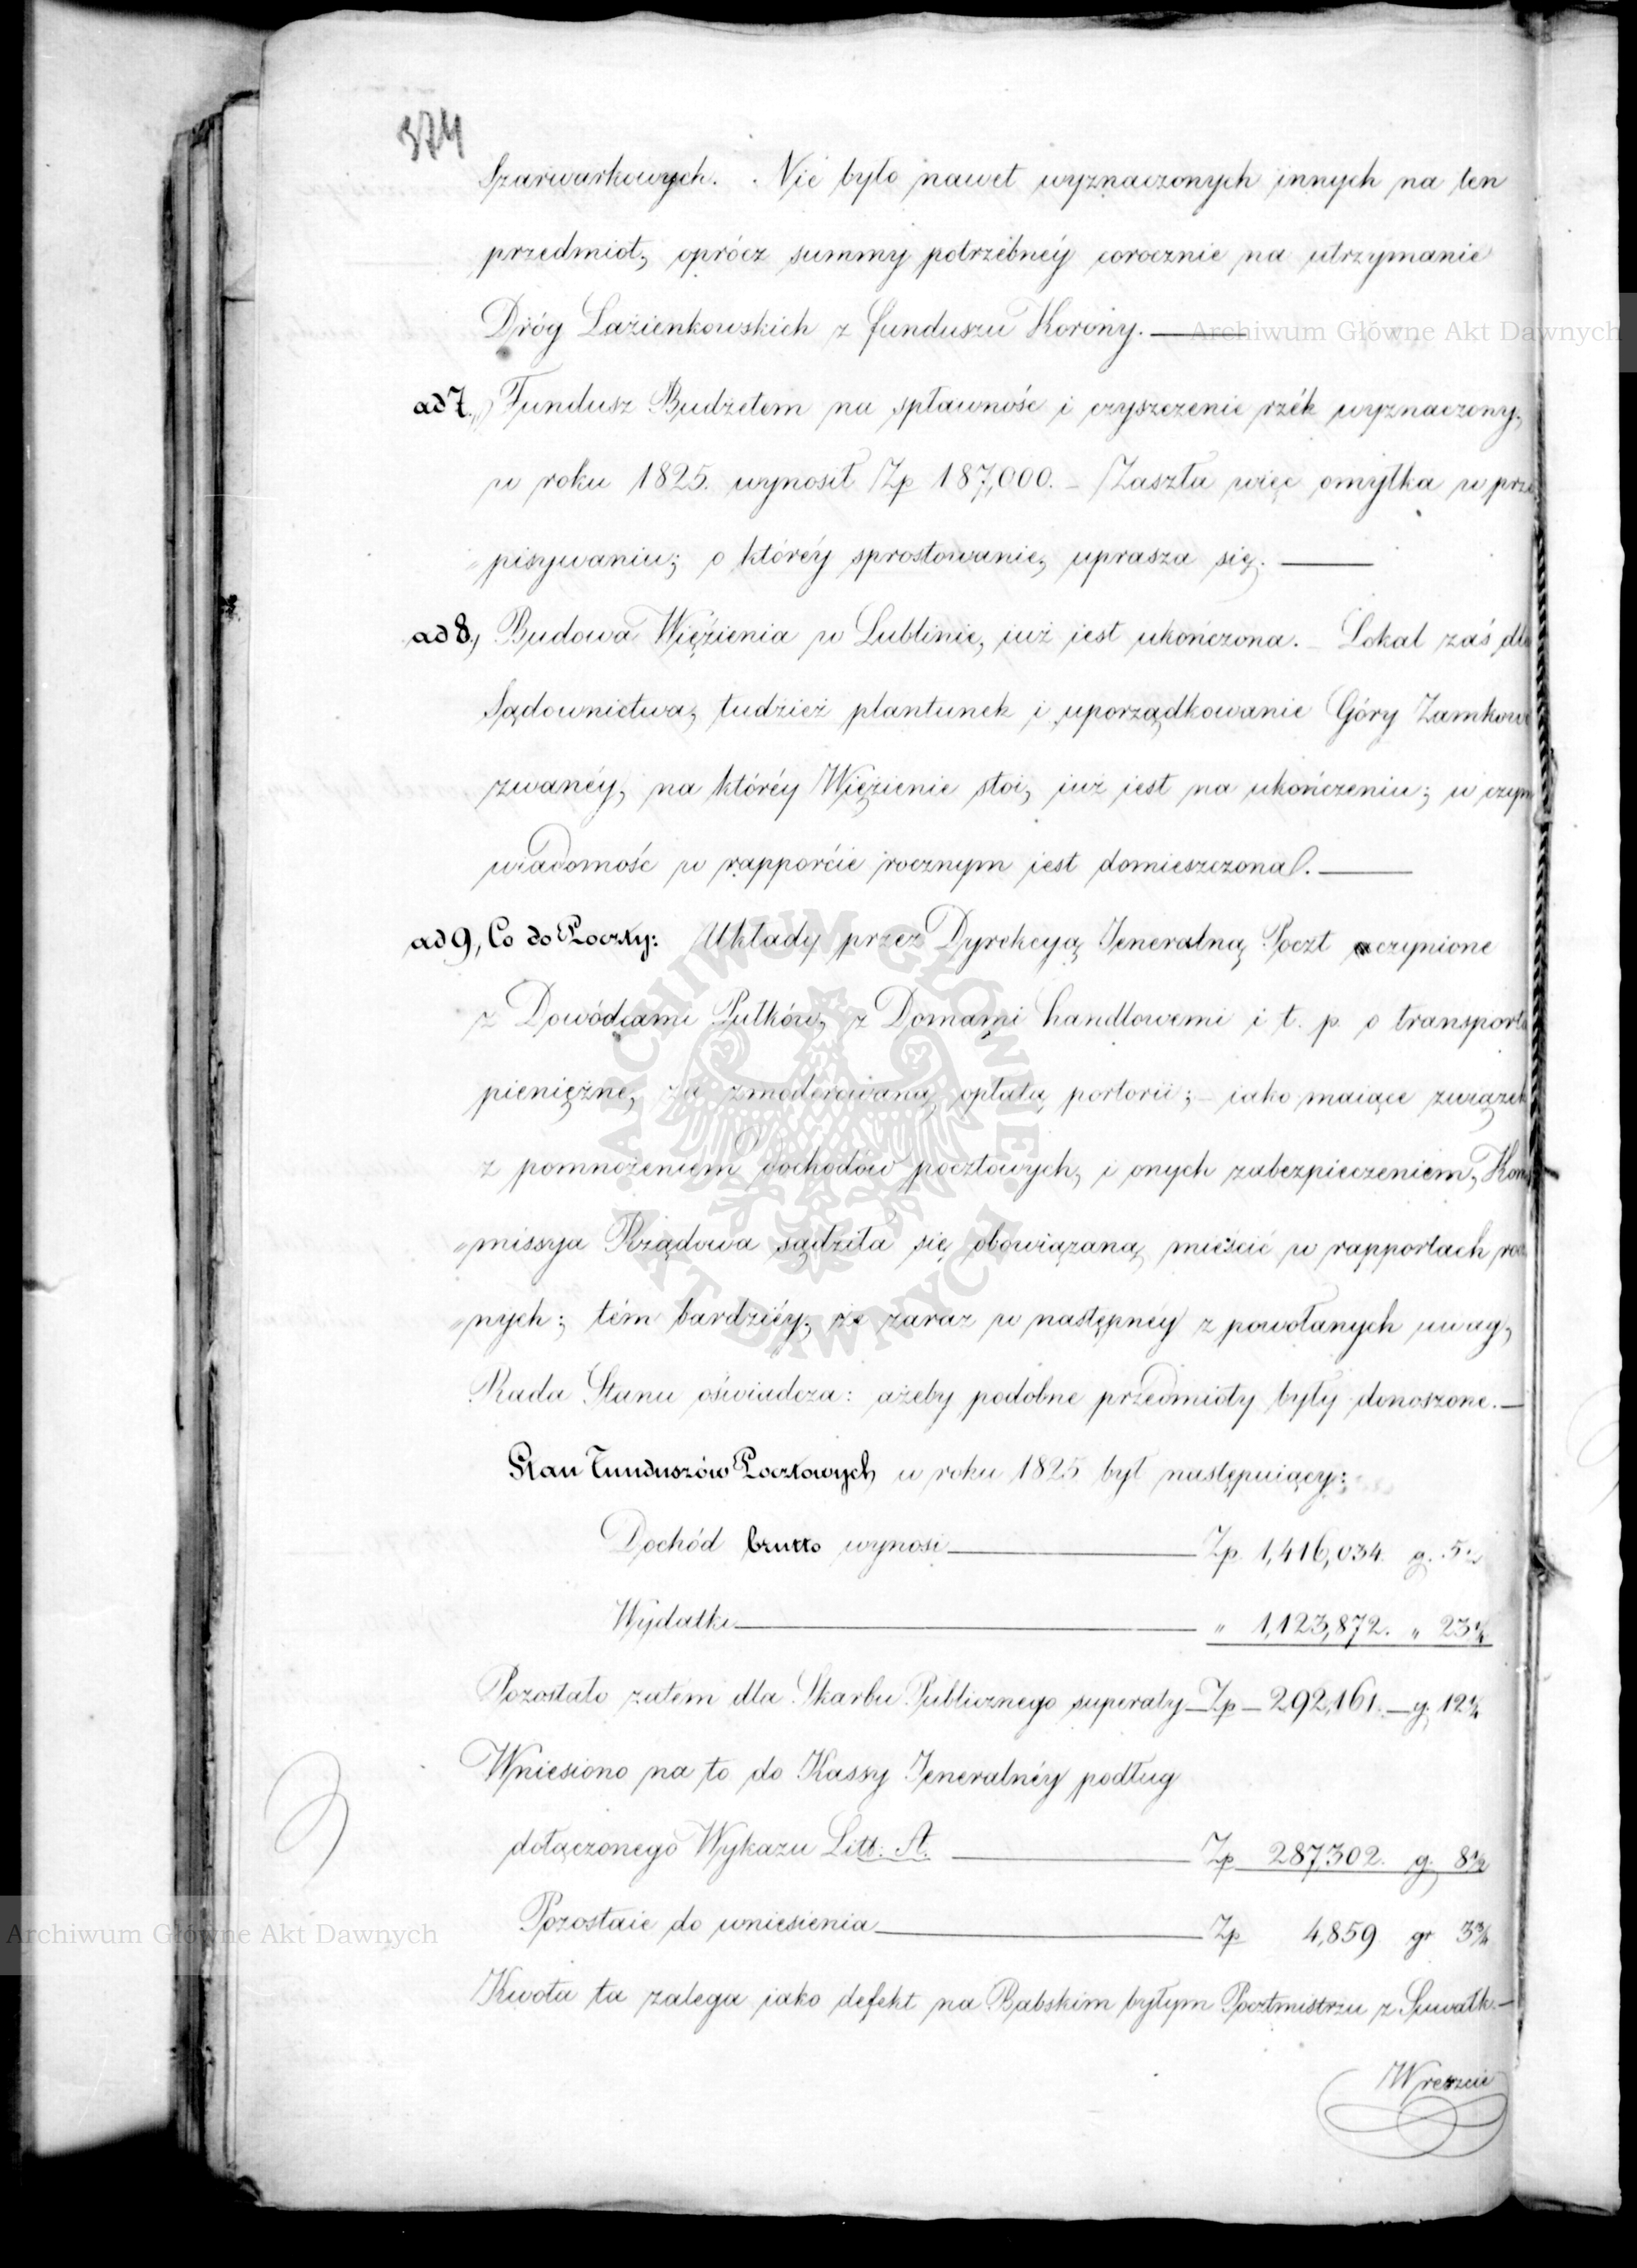 374
Szarwarkowych. Nie było nawet wyznaczonych innych na ten
przedmiot, oprócz summy potrzebnéy corocznie na utrzymanie
Dróg Łazienkowskich z funduszu Korony.
Archiwum Główne Akt Dawnych
ad 7., Fundusz Budżetem na spławność i czyszczenie rzék wyznaczony,
w roku 1825. wynosił Zp 187,000. – Zaszła więc omyłka w prze
„pisywaniu; o któréy sprostowanie, uprasza się.
ad 8., Budowa Więzienia w Lublinie, iuż iest ukończona. – Lokal zaś dla
Sądownictwa, tudzież plantunek i uporządkowanie Góry Zamkowe
zwanéy, na któréy Więzienie stoi, iuż iest na ukończeniu; w czym
wiadomość w rapporcie rocznym iest domieszczona.
ad 9, Co do Poczty: Układy przez Dyrekcyą Jeneralną Poczt uczynione
z Dowódcami Pułków, z Domami handlowemi i t. p. o transporta
pieniężne, za zmoderowaną opłatą portorii; – iako maiące związek
z pomnożeniem dochodów pocztowych, i onych zabezpieczeniem, Kom
„missyja Rządowa sądziła się obowiązaną mieścić w rapportach rocz
„nych; tém bardziéy, że zaraz w następnéy z powołanych uwag,
Rada Stanu oświadcza: ażeby podobne przedmioty były donoszone. –
Stan Funduszów Pocztowych w roku 1825 był następuiący:
Dochód brutto wynosi Zp. 1,416,034. g. 5.
Wydatki " 1,123,872. " 23 1/4
Pozostało zatém dla Skarbu Publicznego superaty – Zp – 292,161. – g. 12 1/4
Wniesiono na to do Kassy Jeneralnéy podług
dołączonego Wykazu Litt: A. Zp 287302. g. 8 1/2
Pozostaie do wniesienia Zp 4,859 gr 3 3/4
Archiwum Główne Akt Dawnych
Kwota ta zalega iako defekt na Babskim byłym Pocztmistrzu z Suwałk. –
Wreszcie
ARCHIWUM GŁÓWNE AKT DAWNYCH